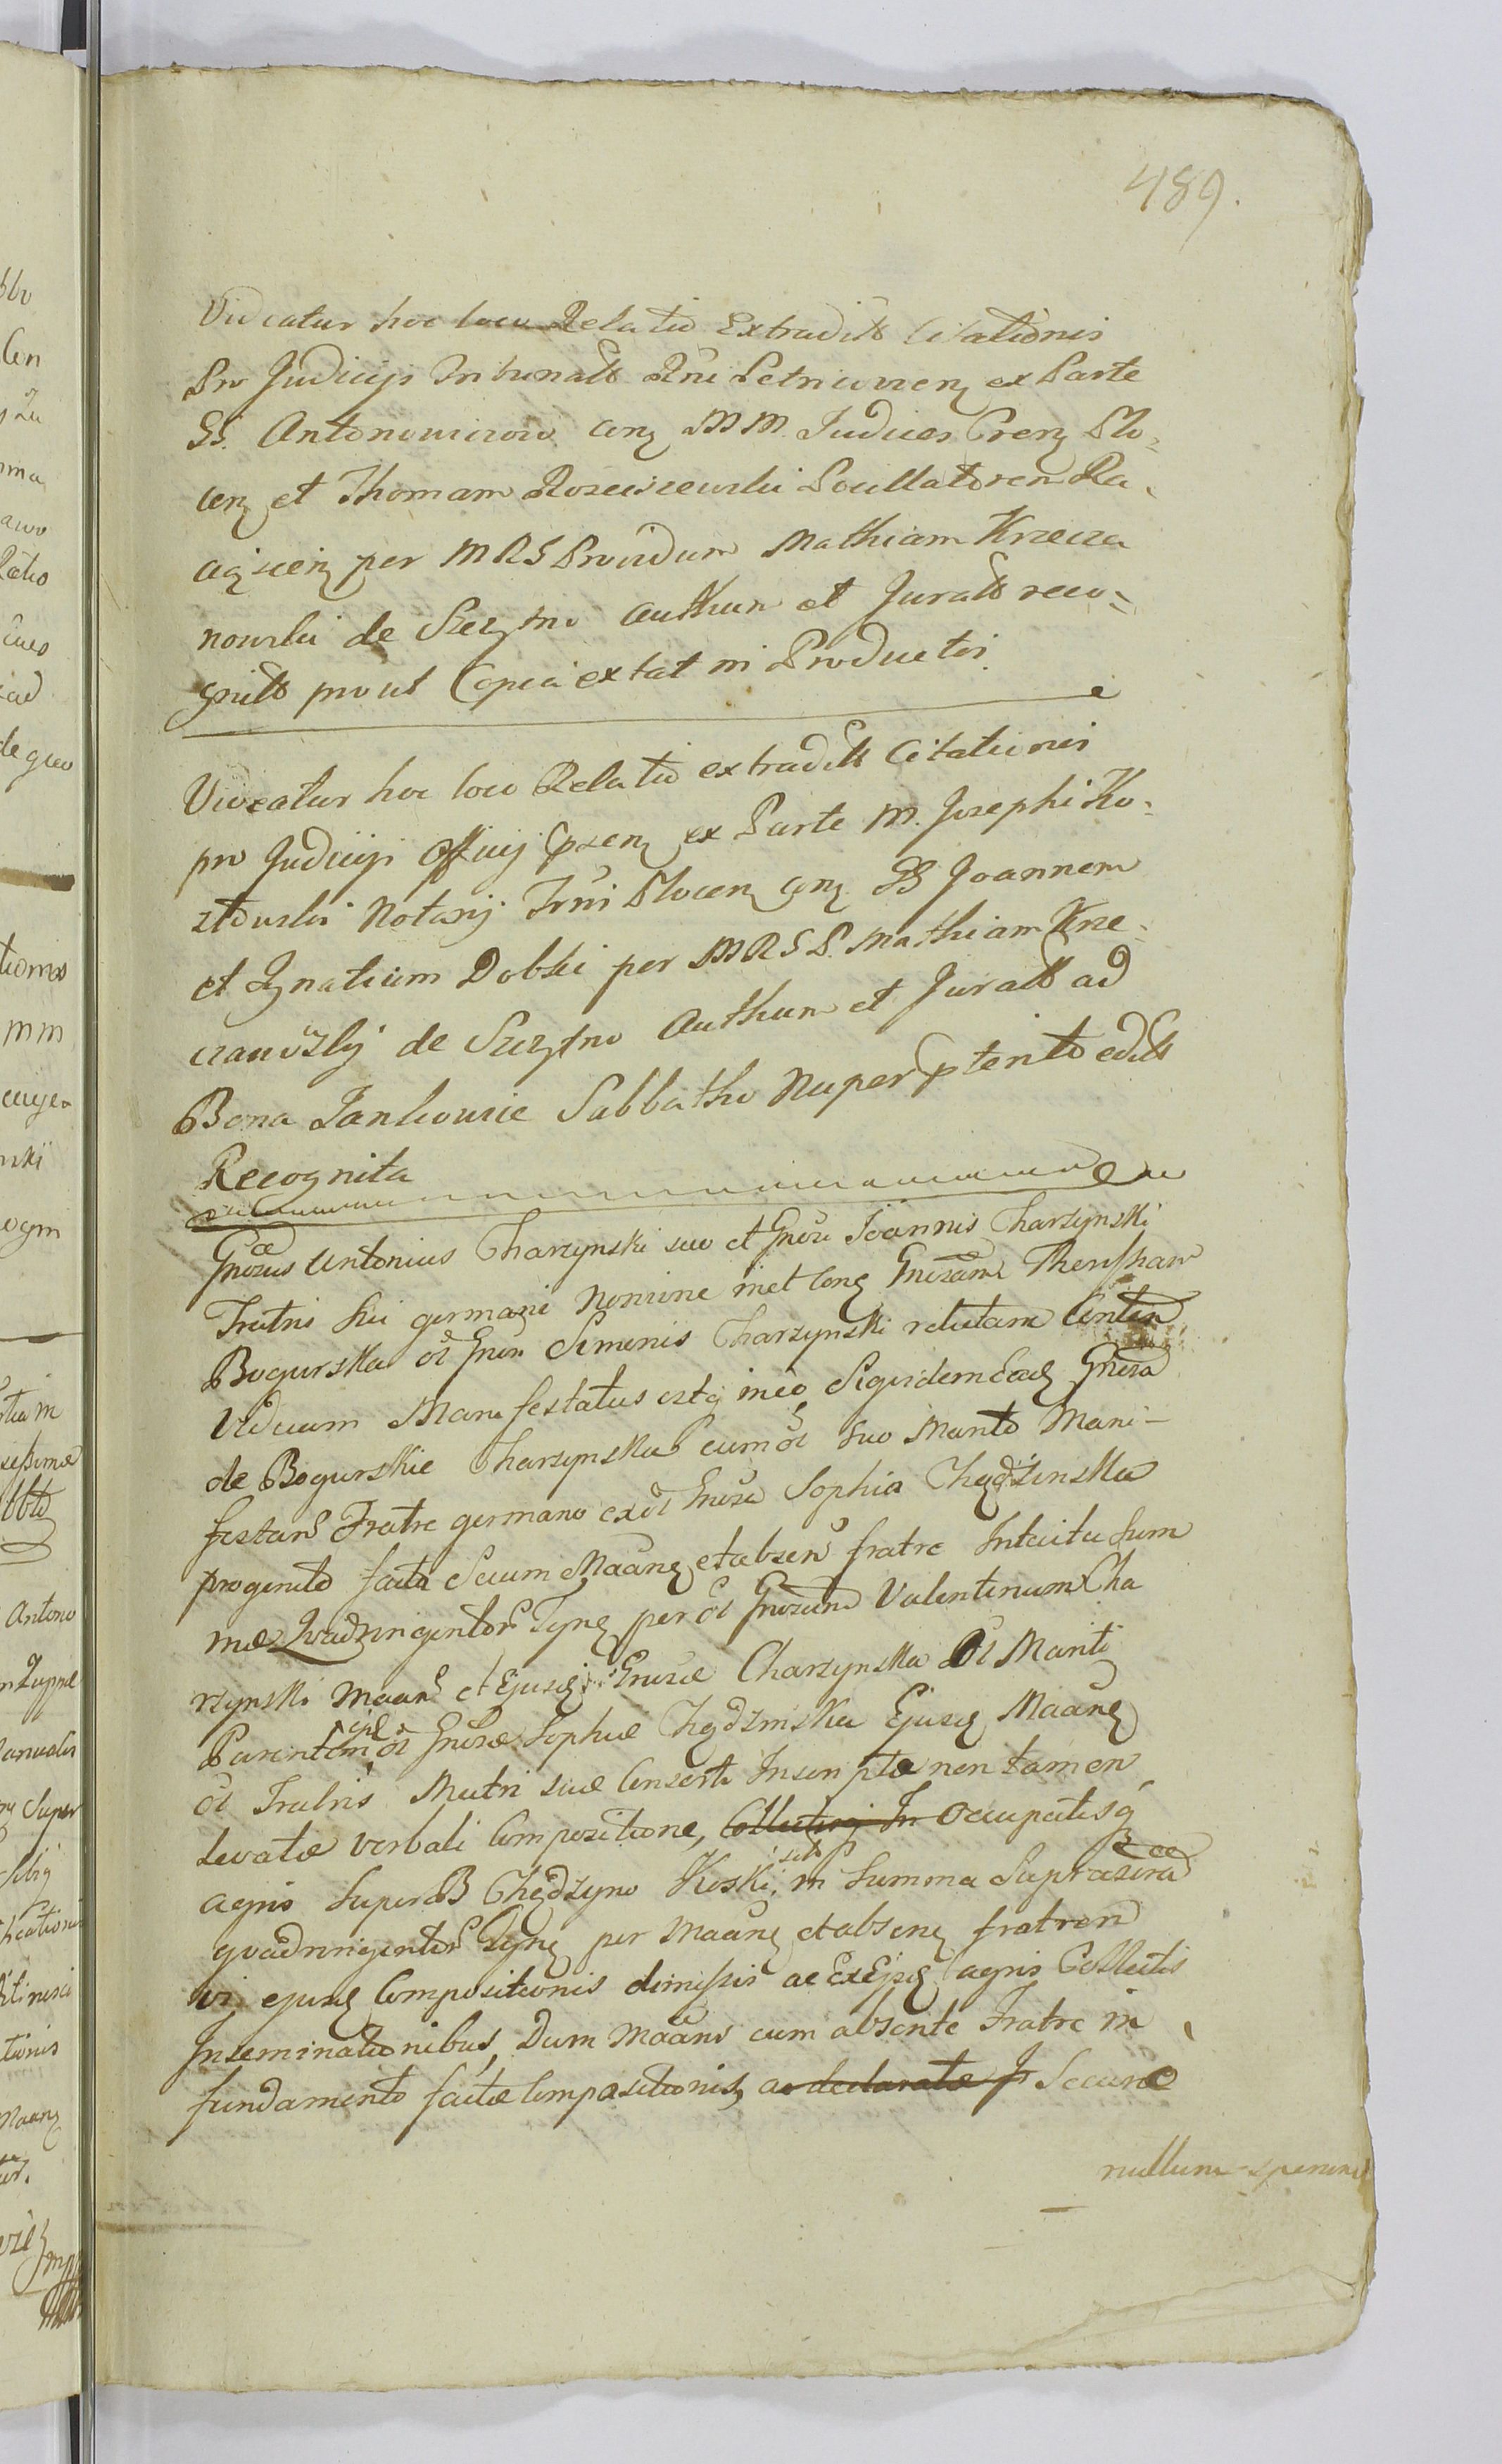 489.
Videatur hoc loco Relatio Extradit Citationis
Pro Judicijs Tribunalt Rni Petricovien ex Parte
GG. Antonowiczow con MM. Judices Cren Plo=
cen et Thomam Rosciszewski Pocillatorem Ra=
ciązien per MRS Providum Mathiam Krzecza
nowski de Szczytno authum et Juratt reco=
gnitt prout Copia extat in Productis
Videatur hoc loco Relatio extraditt Citationis
pro Judicijs Officij Cpsen ex Parte M. Josephi Ko=
ztowski Notarij Trni Plocen con GG Joannem
et Ignatium Dobski per MRS P. Mathiam Krze=
czanowski de Szczytno Authum et Juratt ad
Bona Jankowie Sabbatho Nuper ptento editt
Recognita
Gnosus Antonius Charzynski suo et Gnosi Joannis Charzynski
Fratris sui germani Nomine inet Con Gnosam
Bogurska ol Gnosi Simonis Charzynski relictam
Viduam Manifestatus estq in eo Siquidem Ead Gnosa
de Bogurskie Charzynska cum ol suo Marito Mani-
festan Fratre germano ex ol Gnosa Sophia Chędzinska
progenito facta Secum Maane et absen fratre Intuitu Sum
mae Quadringentor Tyn per ol Gnosum Valentinum Cha
rzynski Maan et Ejusd Gnosae Charzynska ol Mariti
Parentem ol Gnosae Sophiae Chędzinska Ejusd Maane
ol Fratris Matri suae Consorti Inscriptae non tamen
Levatae verbali Compositione, Collectisq In Occupatisq
agris super B Chędzyno Koski, in Summa Suprascra
quadringentor Tyn per Maan et absen fratrem
vi ejusd Compositionis dimissis ac Ex Ejsd agris Collectis
Inseminationibus, Dum Maans cum absente Fratre in
fundamento factae Compositionis, ac declaratae Secum
nullum